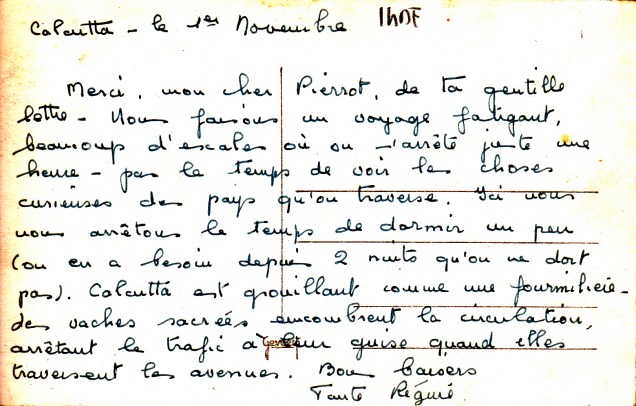 Calcutta - le 1er Novembre
Merci, mon cher Pierrot, de ta gentille
lettre - Nous faisons un voyage fatigant,
beaucoup d'escales où on s'arrête juste une
heure - pas le temps de voir les choses
curieuses des pays qu'on traverse. Ici nous
nous arrêtons le temps de dormir un peu
(on en a besoin depuis 2 nuits qu'on ne dort
pas). Calcutta est grouillant comme une fourmilière -
des vaches sacrées encombrent la circulation,
arrêtant le trafic à leur guise quand elles
traversent les avenues. Bons baisers
Tante